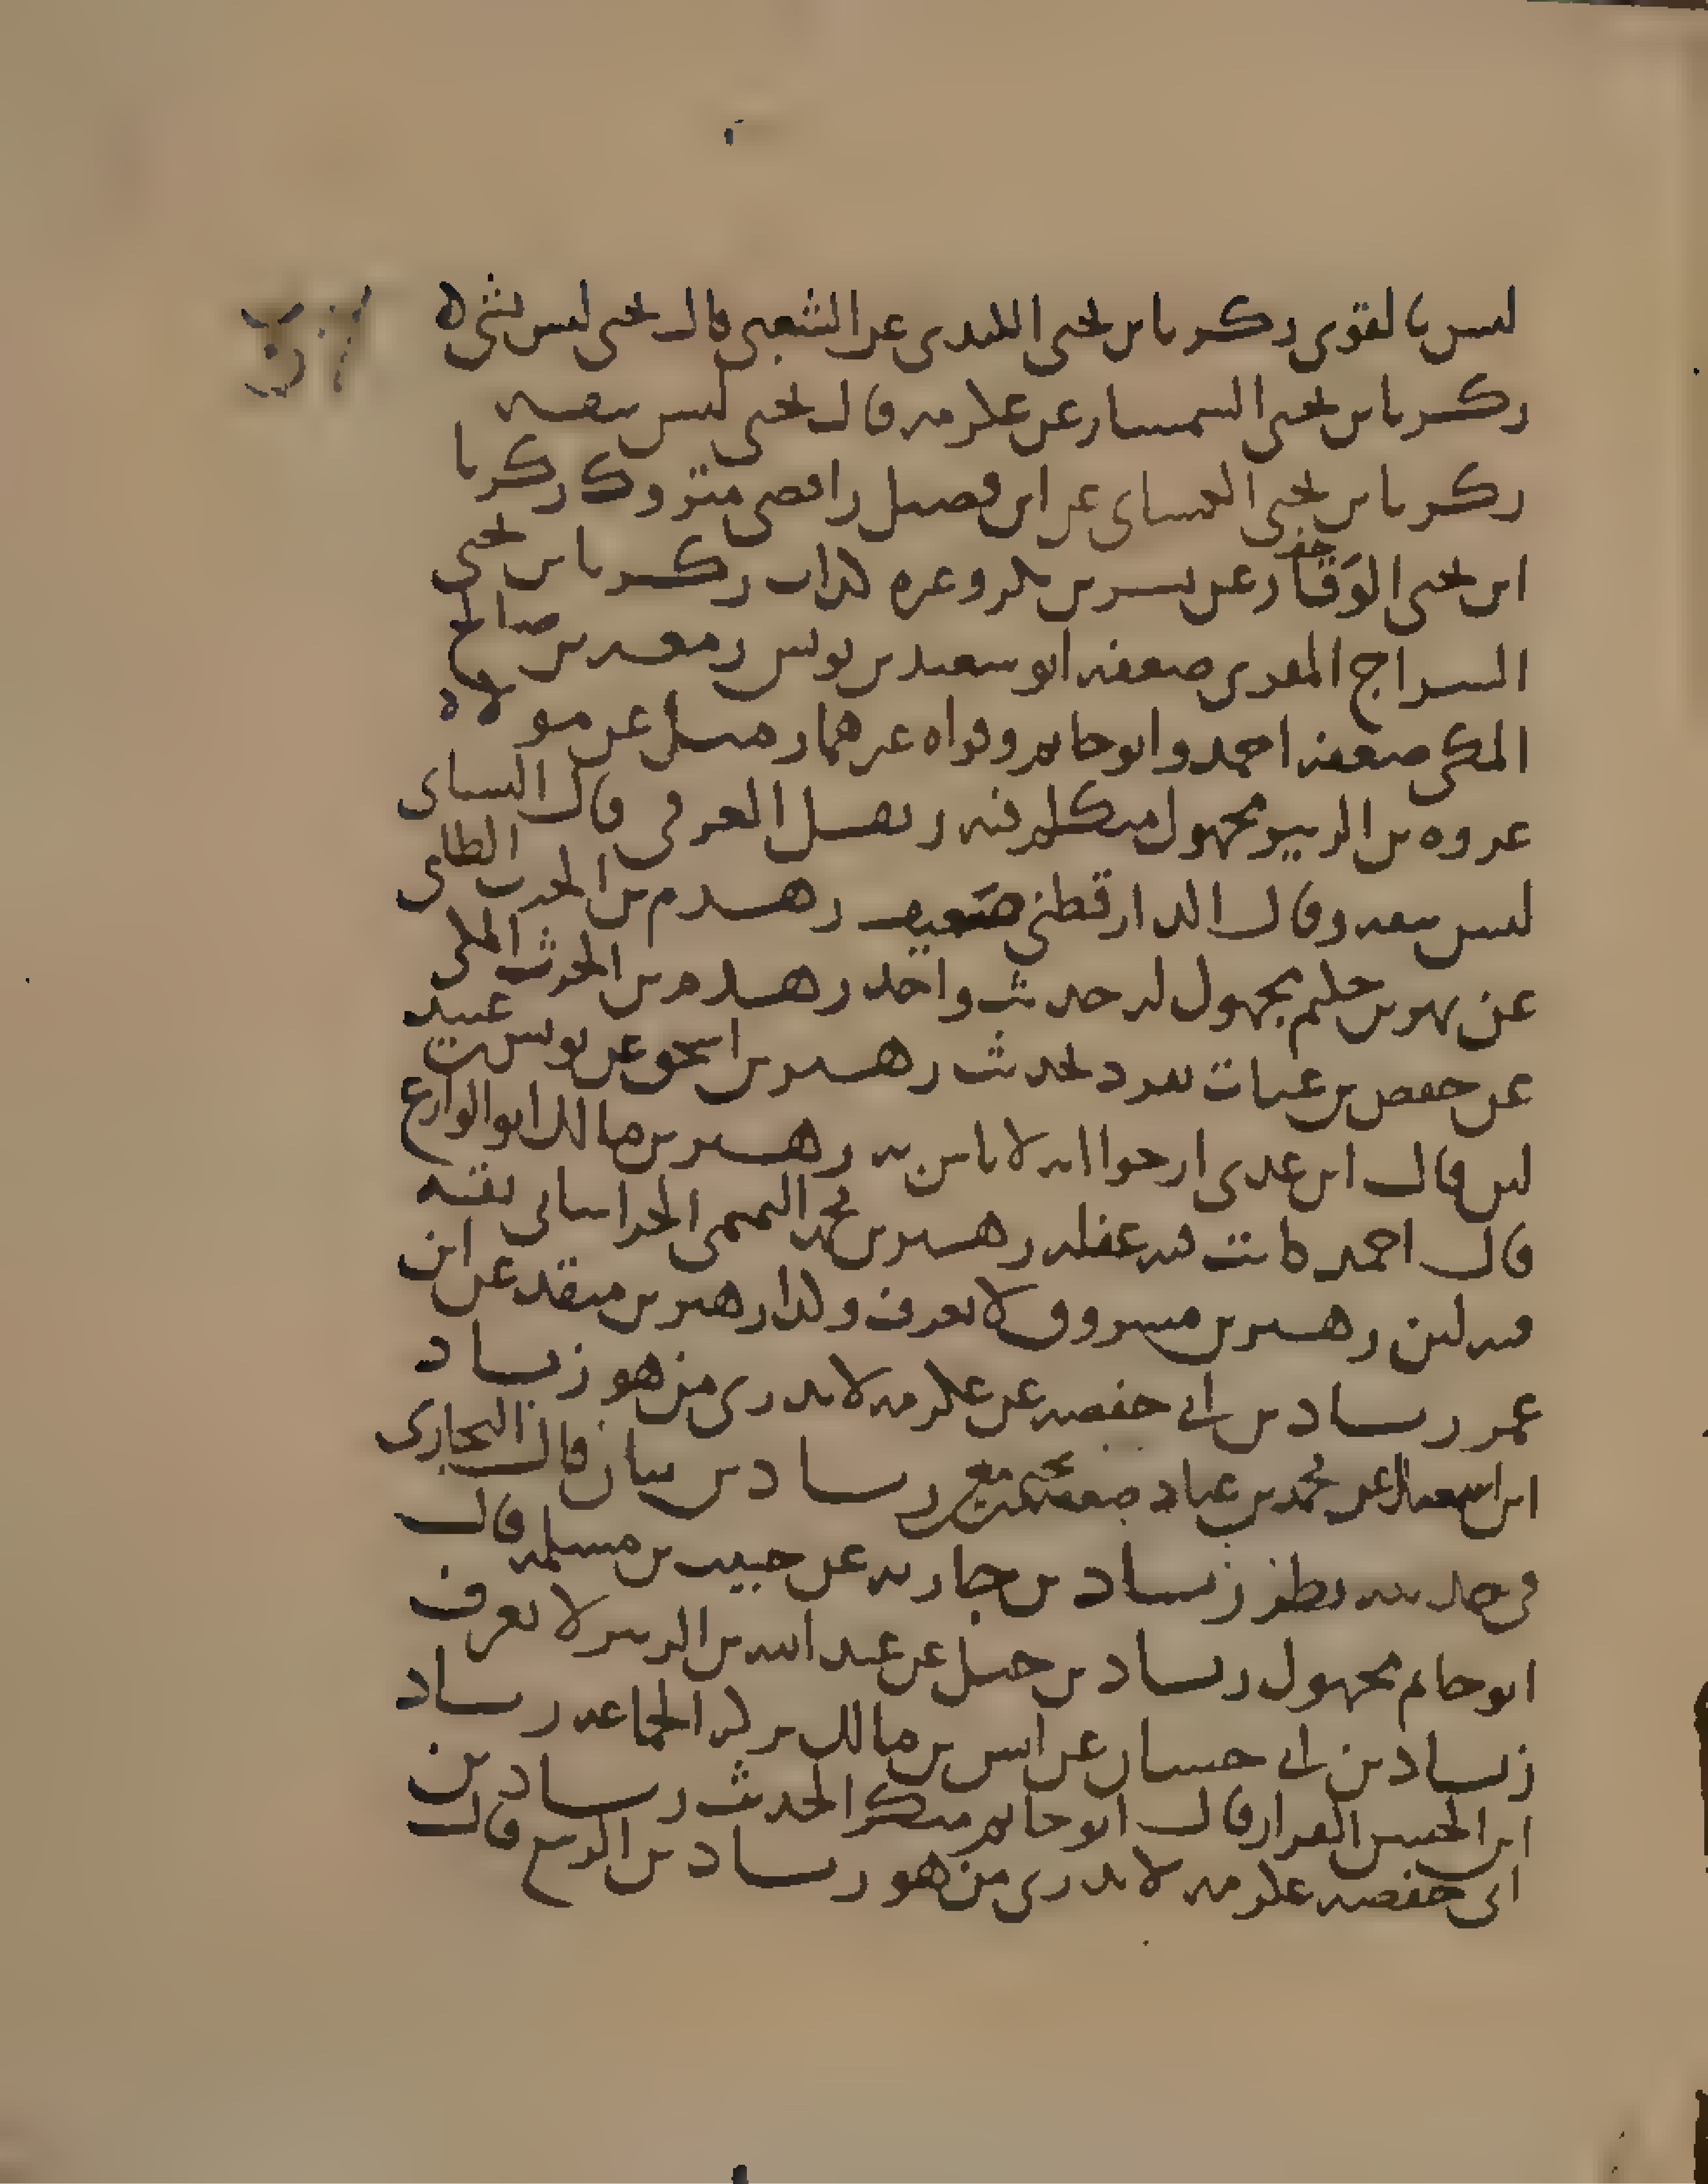 ليس بالقوى زكريا بن يحيى الكندى عن الشعبى قال يحيى ليس بشى ه
زكريا بن يحيى السمسار عن عكرمه قال يحيى ليس بثقه
زكريا بن يحيى الكسائى عن ابن فضيل رافضى متروك زكريا
ابن يحيى الوَقَار عن بشر بن بكر وغيره كذاب زكريا بن يحيى
السراج المقرى ضعفه ابو سعيد بن يونس زمعه بن صالح
المكى ضعفه احمد وابو حاتم وقواه غيرهما زميل عن مولاه
عروه بن الزبير مجهول متكلم فيه زنفل العرفى قال النسائى
ليس بثقه وقال الدارقطنى ضعيف زهدم بن الحرث الطائى
عن بهز بن حكيم مجهول له حديث واحد زهدم بن الحرث المكى
عن حفص بن غياث تفرد بحديث زهير بن اسحق عن يونس بن عبيد
لين قال ابن عدى ارجوا انه لا باس به زهير بن مالك ابو الوازع
قال احمد كانت فيه غفله زهير بن محمد التميمى الخراسانى ثقه
فيه لين زهير بن مسروق لا يعرف وكذا زهير بن منقذ عن ابن
عمر زياد بن ابى حفصه عن عكرمه لا يدرى من هو زياد
ابن اسمعيل عن محمد بن عباد ضعفه ابن معين زياد بن بيان قال البخارى
فى حديثه نظر زياد بن جاريه عن حبيب بن مسلمه قال
ابو حاتم مجهول زياد بن حبيل عن عبد الله بن الزبير لا يعرف
زياد بن ابى حسان عن انس بن مالك ترك الجماعه زياد
ابن الحسن القزاز قال ابو حاتم منكر الحديث زياد بن
ابى حفصه عكرمه لا يدرى من هو زياد بن الربيع قال